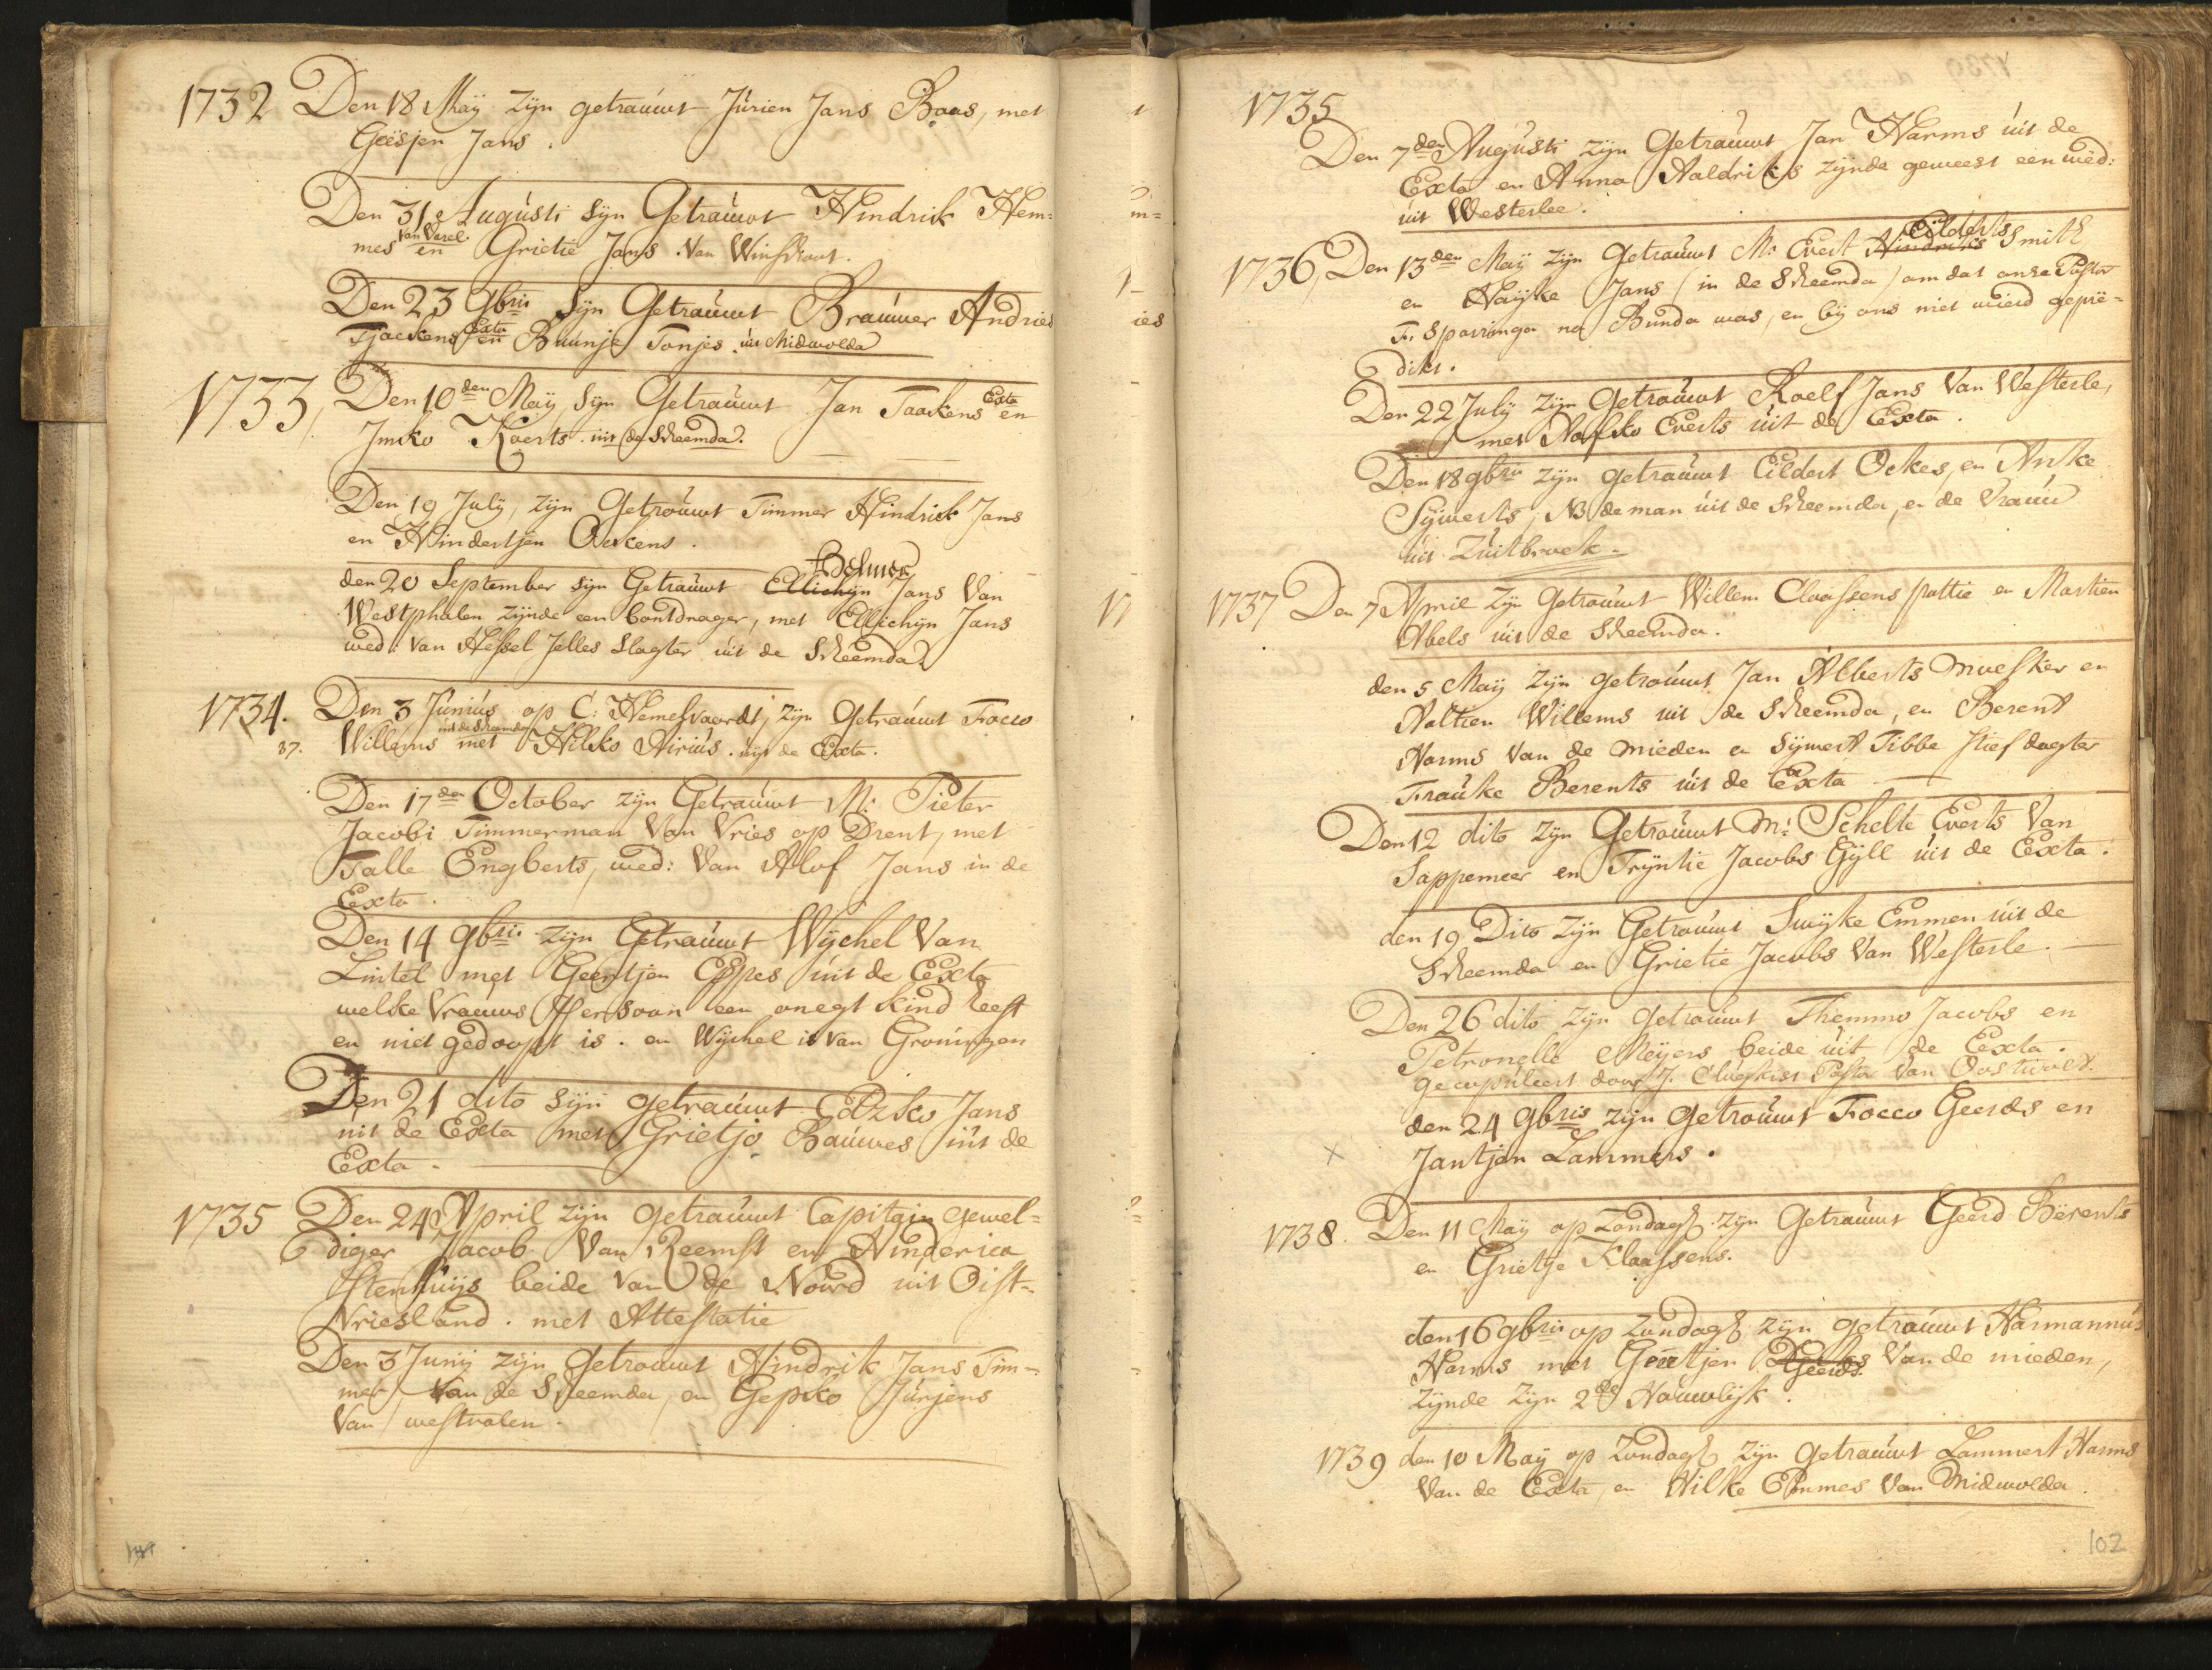 1732 Den 18 Maÿ zÿn getraúwt Júrien Jans Baas, met
Geesjen Jans.
Den 31 Augústi sÿn Getraúwt Hindrick Hem=
van Varel.
mes en Grietie Jans. Van Winschoot.
Den 23 9bris sÿn Getraúwt Braúwer Andries
Exta
Tjackens en Buúnje Tonjes. úit Midwolda
1733 Den 10den Maÿ sÿn Getraúwt Jan Taackens Exta en
Imko Koerts. úit de Scheemda.
Den 19 Julÿ, zÿn Getroúwt Timmer Hindrick Jans
en Hindertjen Ockens.
Belmer
den 20 September sÿn Getraúwt Ellichÿn Jans Van
Westphalen zÿnde een bontdrager, met Ellichÿn Jans
wed: van Hessel Jelles Slagter úit de Scheemda.
1734. Den 3 Júniús op C: Hemelvaardt, zÿn Getraúwt Focco
uit de Scheemda
37. Willems met Hilcko Airiús. uÿt de Exta.
Den 17den October zÿn Getraúwt Mr Pieter
Jacobi Timmerman Van Vries op Drent, met
Talle Engberts, wed: Van Alof Jans in de
Exta.
Den 14 9bris zÿn Getraúwt Wÿchel Van
Lintel met Geertjen Eppes úit de Exta
welke Vraúws Persoon een onegt kind heeft
en niet gedoopt is. en Wÿchel is van Groningen
Den 21 dito sÿn getraúwt Edzko Jans
uit de Exta met Grietjo Baúwes úit de
Exta.
1735 Den 24 April zÿn getraúwt Capitain gewel=
diger Jacob Van Reemst en Hinderica
Stenhúÿs beide Van de Noord uit Oist=
Vriesland. met Attestatie
Den 3 Junÿ zÿn Getroúwt Hindrik Jans Tim=
mer Van de Scheemda, en Gepko Júrjens
Van westvalen.
1735
Den 7den Augústi zÿn Getraúwt Jan Harms úit de
Exta en Anna Haldriks zÿnde geweest een wed:
úit Westerlee.
Eilderts
1736, Den 13den Maÿ zÿn Getraúwt Mr Evert Hindriks Smith
en Haÿke Jans (in de Scheemda) om dat onse Pastor
F: Sparringa na Bunda was, en bÿ ons niet wierd geprë=
dikt.
Den 22 Julÿ zÿn Getroúwt Roelf Jans Van Westerle,
met Hafko Everts úit de Exta.
Den 18 9bris zÿn getraúwt Eildert Ockes, en Anke
Sÿwerts; NB de man úit de Scheemda, en de Vraúw
úit Zúitbroek.
1737 Den 7 April zÿn Getroúwt Willem Claassens pottie en Martien
Abels úit de Scheemda.
den 5 Maÿ zÿn getroúwt Jan Alberts moesker en
Aaltien Willems uit de Scheemda, en Berent
Harms Van de mieden en Sÿwert Tibbe stiefdogter
Fraúke Berents úit de Exta
Den 12 dito zÿn Getroúwt Mr Schelte Everts Van
Sappemeer en Trÿntie Jacobs Gÿll úit de Exta.
den 19 Dito zÿn Getroúwt Luÿke Emmen úit de
Scheemda en Grietie Jacobs Van Westerle.
Den 26 dito zÿn Getroúwt Themmo Jacobs en
Petronella Meÿers beide úit de Exta.
gecopúleert door J. Clúgkist Pastor Van Oostwolt.
den 24 9bris zÿn getroúwt Focco Geerds en
Jantjen Lammers.
1738. Den 11 Maÿ op Zondagh zÿn Getraúwt Geerd Bërents
en Grietje Klaassens.
den 16 9bris op Zondagh zÿn getroúwt Harmannús
Harms met Geertjen Geerds Van de mieden,
zÿnde zÿn 2de Houwlÿk.
1739 den 10 Maÿ op Zondagh zÿn getraúwt Lammert Harms
Van de Exta, en Hilke Emmes Van Midwolda.
102